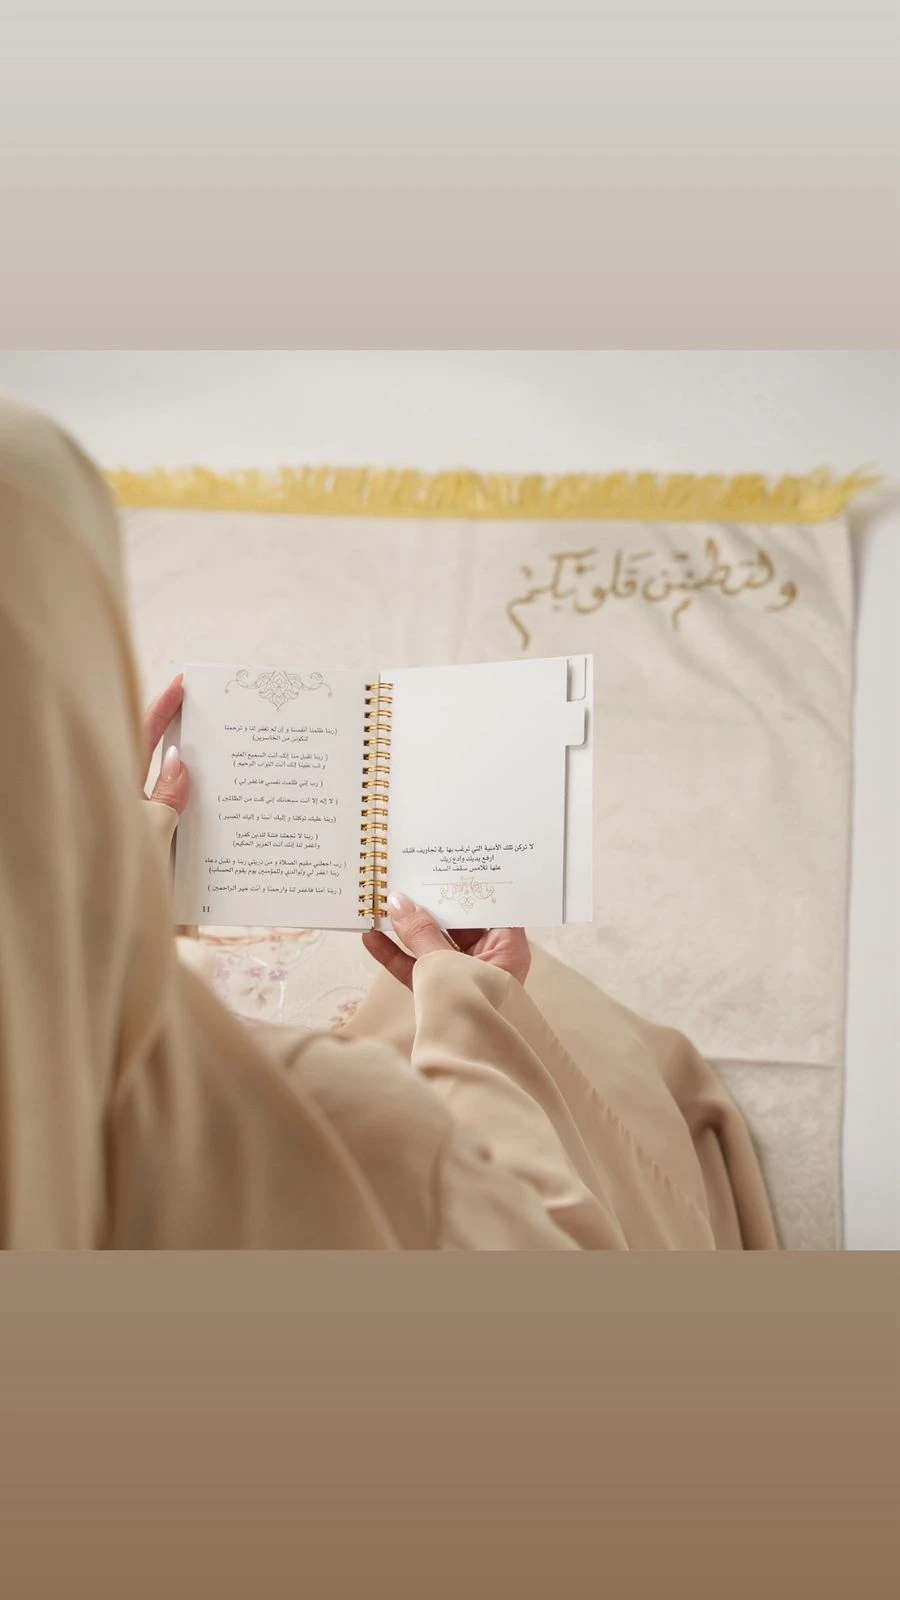 ولتطمئن قلوبكم
(ربنا ظلمنا أنفسنا و إن لم تغفر لنا و ترحمنا
لنكونن من الخاسرين)
( ربنا تقبل منا إنك أنت السميع العليم
و تب علينا إنك أنت التواب الرحيم )
( رب إني ظلمت نفسي فاغفر لي )
( لا إله إلا أنت سبحانك إني كنت من الظالمين )
(ربنا عليك توكلنا و إليك أنبنا و إليك المصير )
( ربنا لا تجعلنا فتنة للذين كفروا
واغفر لنا إنك أنت العزيز الحكيم)
( رب اجعلني مقيم الصلاة و من ذريتي ربنا و تقبل دعاء
ربنا اغفر لي ولوالدي وللمؤمنين يوم يقوم الحساب)
( ربنا آمنا فاغفر لنا وارحمنا و أنت خير الراحمين )
11
لا تركن تلك الأمنية التي ترغب بها في تجاويف قلبك
ارفع يديك وادع ربك
علها تلامس سقف السماء